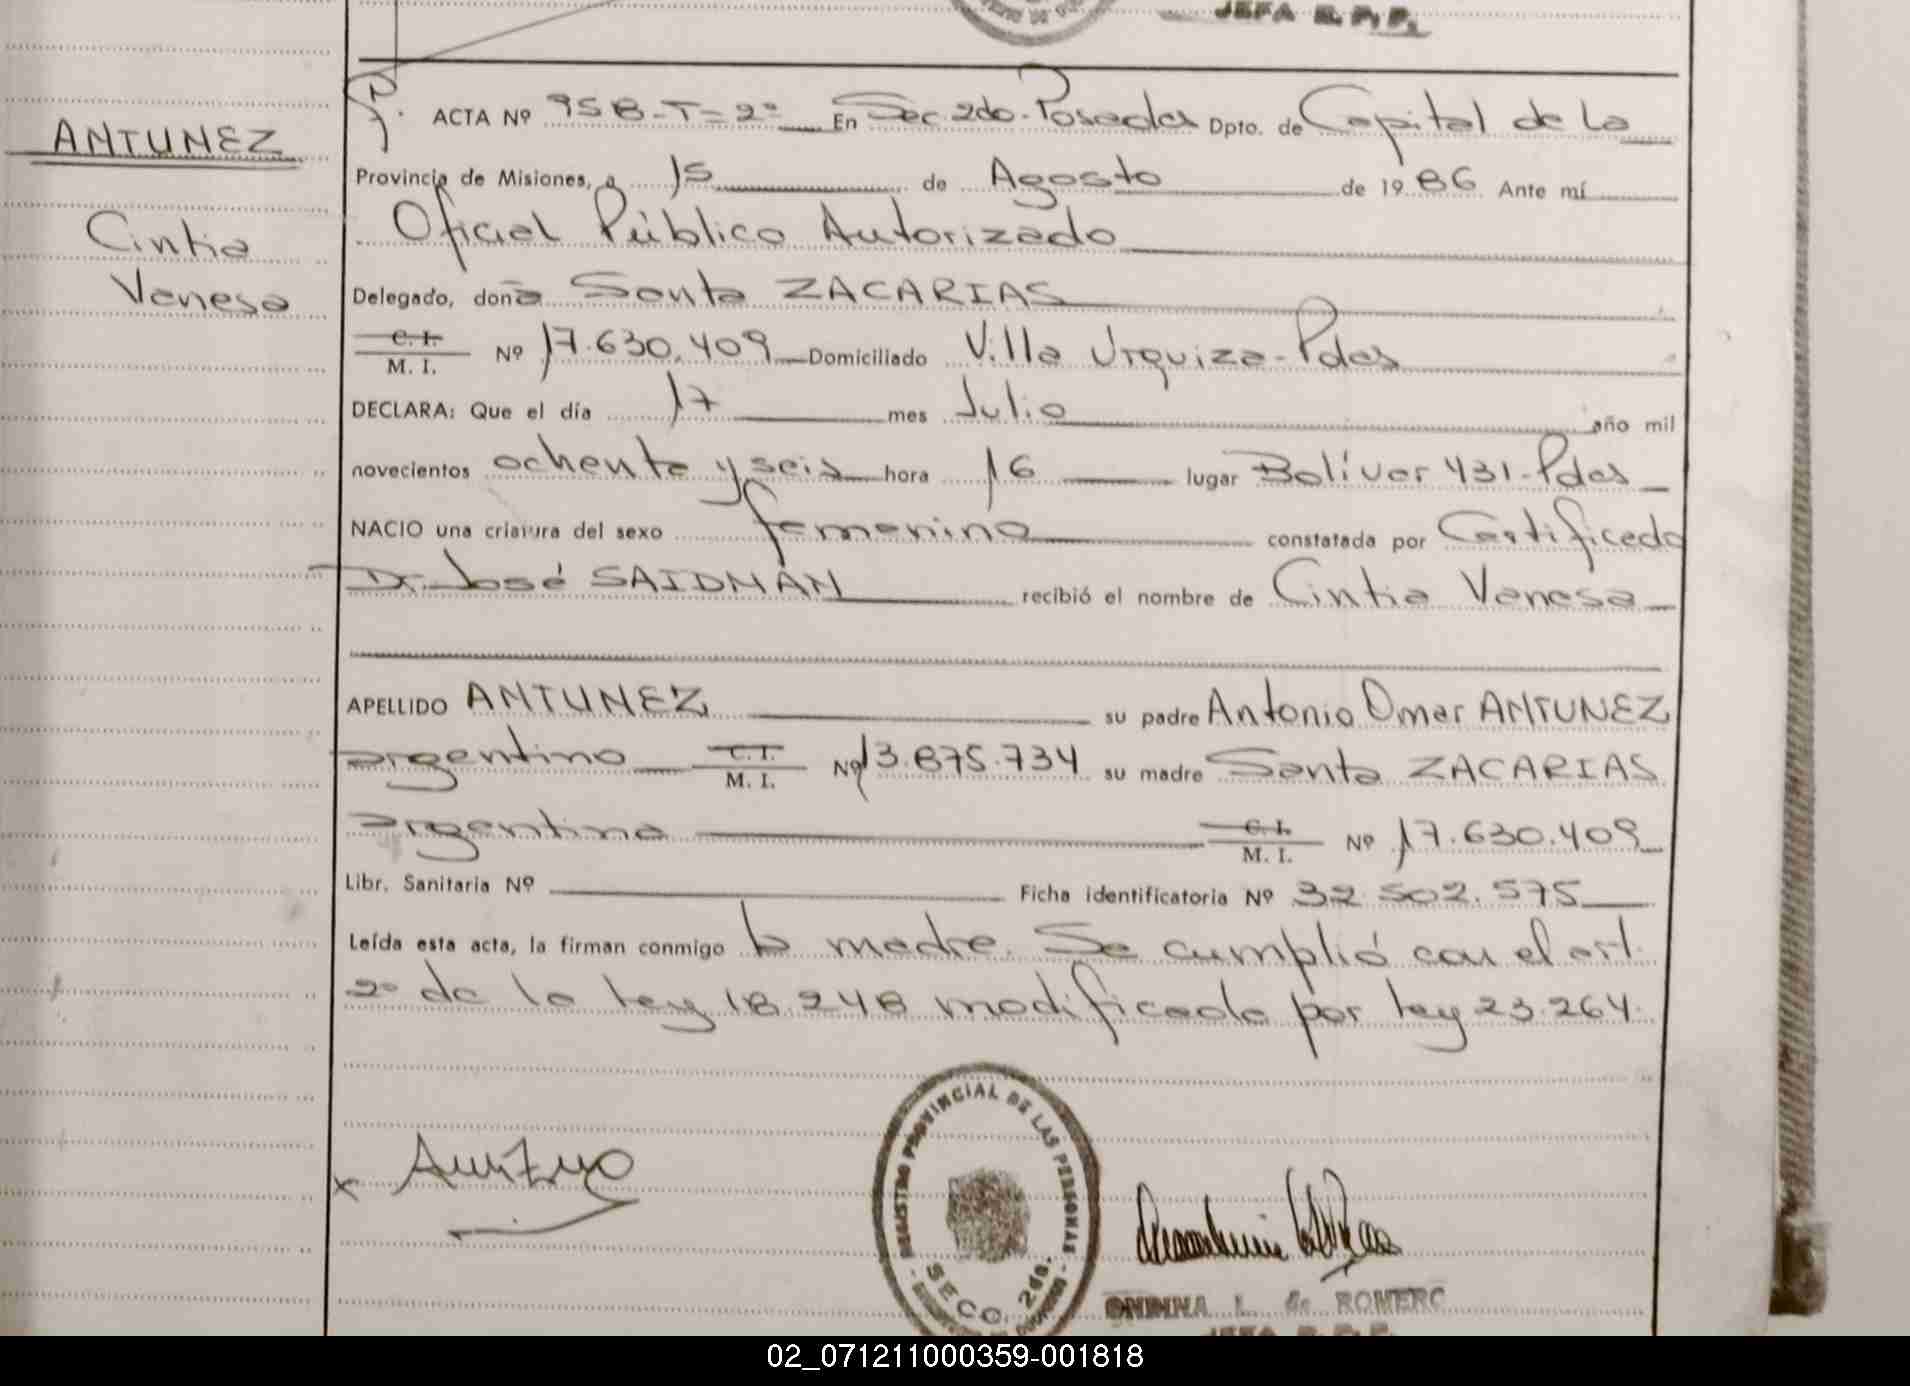 JEFA R. P. P.
ANTUNEZ
Cintia
Vanesa
ACTA Nº 958-T=2º En Sec. 2do. Posadas Dpto. de Capital de la
Provincia de Misiones, a 15 de Agosto de 1986 Ante mí
Oficial Público Autorizado
Delegado, doña Santa ZACARIAS
C. I.
M. I. Nº 17.630.409 Domiciliado Villa Urquiza-Pdas
DECLARA: Que el día 17 mes Julio año mil
novecientos ochenta y seis hora 16 lugar Bolívar 431-Pdas
NACIO una criatura del sexo femenino constatada por Certificado
Dr. José SAIDMAN recibió el nombre de Cintia Vanesa
APELLIDO ANTUNEZ su padre Antonio Omar ANTUNEZ
argentino C. I. M. I. Nº 13.875.734 su madre Santa ZACARIAS
argentina C. I. M. I. Nº 17.630.409
Libr. Sanitaria Nº Ficha identificatoria Nº 32.502.575
Leída esta acta, la firman conmigo la madre. Se cumplió con el art.
2º de la ley 18.248 modificada por ley 23.264.
REGISTRO PROVINCIAL DE LAS PERSONAS
SECC. 2da.
L. de ROMERO
JEFA R. P. P.
02_071211000359-001818